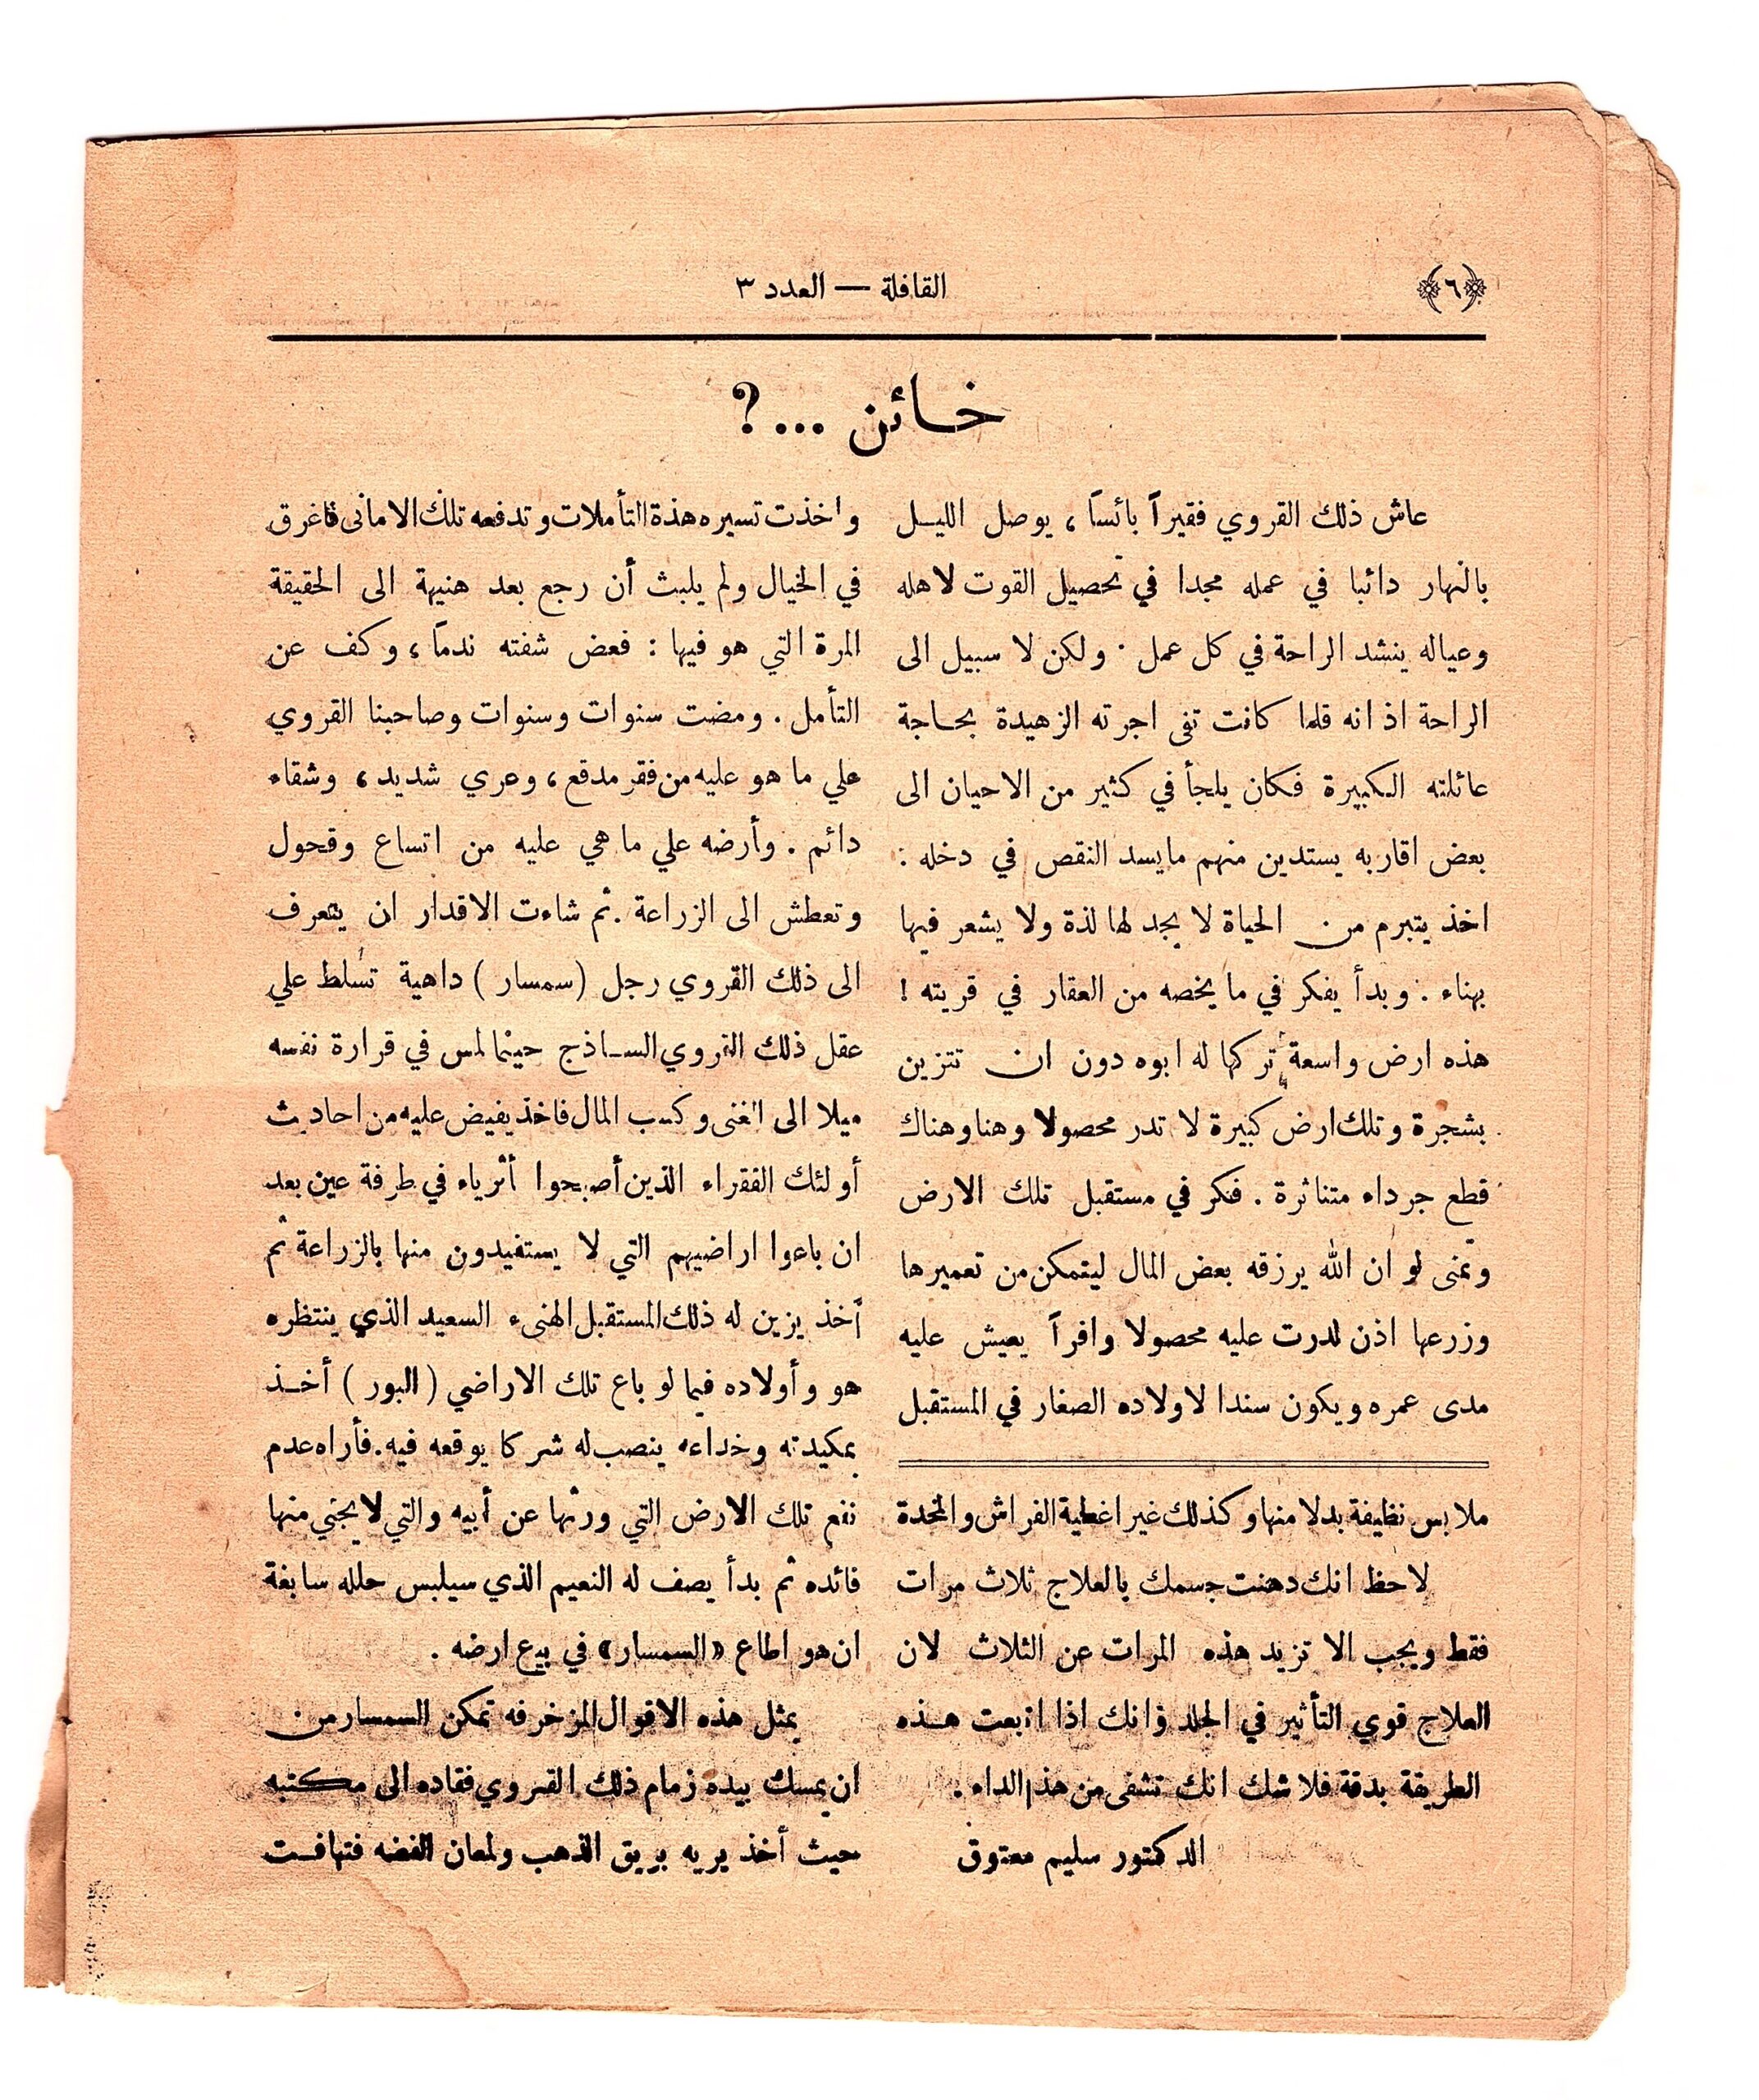 ﴿٦﴾
القافلة — العدد ٣
خائن ...؟
عاش ذلك القروي فقيراً بائساً ، يوصل الليل
بالنهار دائبا في عمله مجدا في تحصيل القوت لاهله
وعياله ينشد الراحة في كل عمل . ولكن لا سبيل الى
الراحة اذ انه قلما كانت تفى اجرته الزهيدة بحاجة
عائلته الكبيرة فكان يلجأ في كثير من الاحيان الى
بعض اقاربه يستدين منهم مايسد النقص في دخله :
اخذ يتبرم من الحياة لا يجد لها لذة ولا يشعر فيها
بهناء . وبدأ يفكر في ما يخصه من العقار في قريته !
هذه ارض واسعة تركها له ابوه دون ان تتزين
بشجرة وتلك ارض كبيرة لا تدر محصولا وهنا وهناك
قطع جرداء متناثرة . فكر في مستقبل تلك الارض
وتمنى لو ان الله يرزقه بعض المال ليتمكن من تعميرها
وزرعها اذن لدرت عليه محصولا وافراً يعيش عليه
مدى عمره ويكون سندا لاولاده الصغار في المستقبل
واخذت تسيره هذة التأملات وتدفعه تلك الامانى فاغرق
في الخيال ولم يلبث أن رجع بعد هنيهة الى الحقيقة
المرة التي هو فيها : فعض شفته ندماً ، وكف عن
التأمل . ومضت سنوات وسنوات وصاحبنا القروي
علي ما هو عليه من فقر مدقع ، وعري شديد ، وشقاء
دائم . وأرضه علي ما هي عليه من اتساع وقحول
وتعطش الى الزراعة . ثم شاءت الاقدار ان يتعرف
الى ذلك القروي رجل (سمسار) داهية تسلط علي
عقل ذلك القروي الساذج حينما لمس في قرارة نفسه
ميلا الى الغنى وكسب المال فاخذ يفيض عليه من احاديث
أولئك الفقراء الذين أصبحوا أثرياء في طرفة عين بعد
ان باعوا اراضيهم التي لا يستفيدون منها بالزراعة ثم
أخذ يزين له ذلك المستقبل الهنىء السعيد الذي ينتظره
هو وأولاده فيما لو باع تلك الاراضي ( البور ) أخذ
بمكيدته وخداعه ينصب له شركا يوقعه فيه . فأراه عدم
نفع تلك الارض التي ورثها عن أبيه والتي لا يجني منها
فائده ثم بدأ يصف له النعيم الذي سيلبس حلله سابغة
ان هو اطاع «السمسار» في بيع ارضه .
بمثل هذه الاقوال المزخرفه تمكن السمسار من
ان يمسك بيده زمام ذلك القروي فقاده الى مكتبه
حيث أخذ يريه بريق الذهب ولمعان الفضه فتهافت
ملابس نظيفة بدلا منها وكذلك غير اغطية الفراش والمخدة
لاحظ انك دهنت جسمك بالعلاج ثلاث مرات
فقط ويجب الا تزيد هذه المرات عن الثلاث لان
العلاج قوي التأثير في الجلد فانك اذا اتبعت هذه
الطريقة بدقة فلا شك انك تشفى من هذا الداء .
الدكتور سليم معتوق